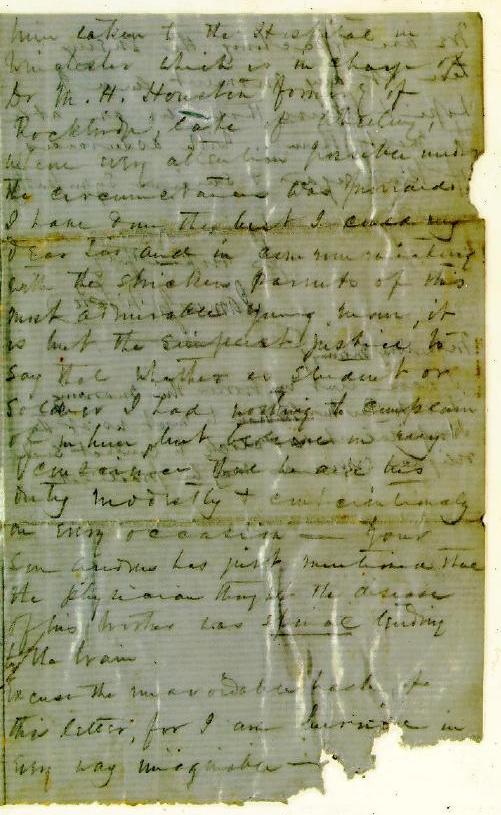 him taken to the Hospital in
Winchester which is in charge of
Dr M. H. Houston formerly of
Rockbridge, late of Wheeling,
where every attention possible under
the circumstances was provided.
I have done the best I could my
dear Sir, and in communicating
with the stricken parents of this
most admirable young man, it
is but the simplest justice to
say that whether as student or
Soldier I had nothing to complain
of in him, but believe in every
conscience that he did his
duty modestly & conscientiously
on every occasion — Your
Son Andrew has just mentioned that
the physician thought the disease
of his brother was spinal tending
to the brain.
Excuse the unavoidable haste of
this letter, for I am hurried in
every way imaginable —